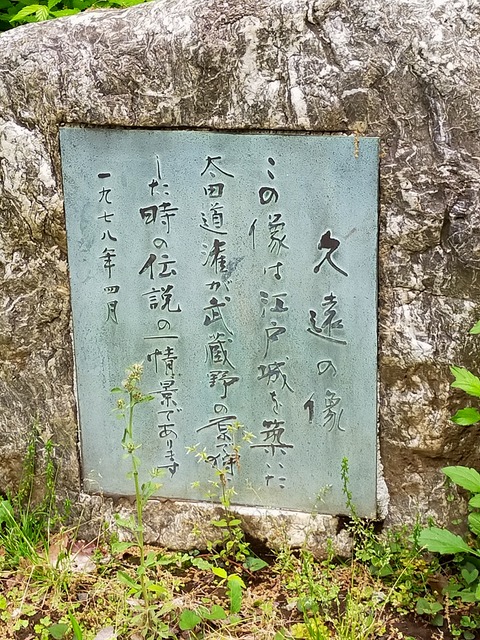 久遠の像
この像は江戸城を築いた
太田道灌が武蔵野の
した時の伝説の一情景であります
一九七八年四月